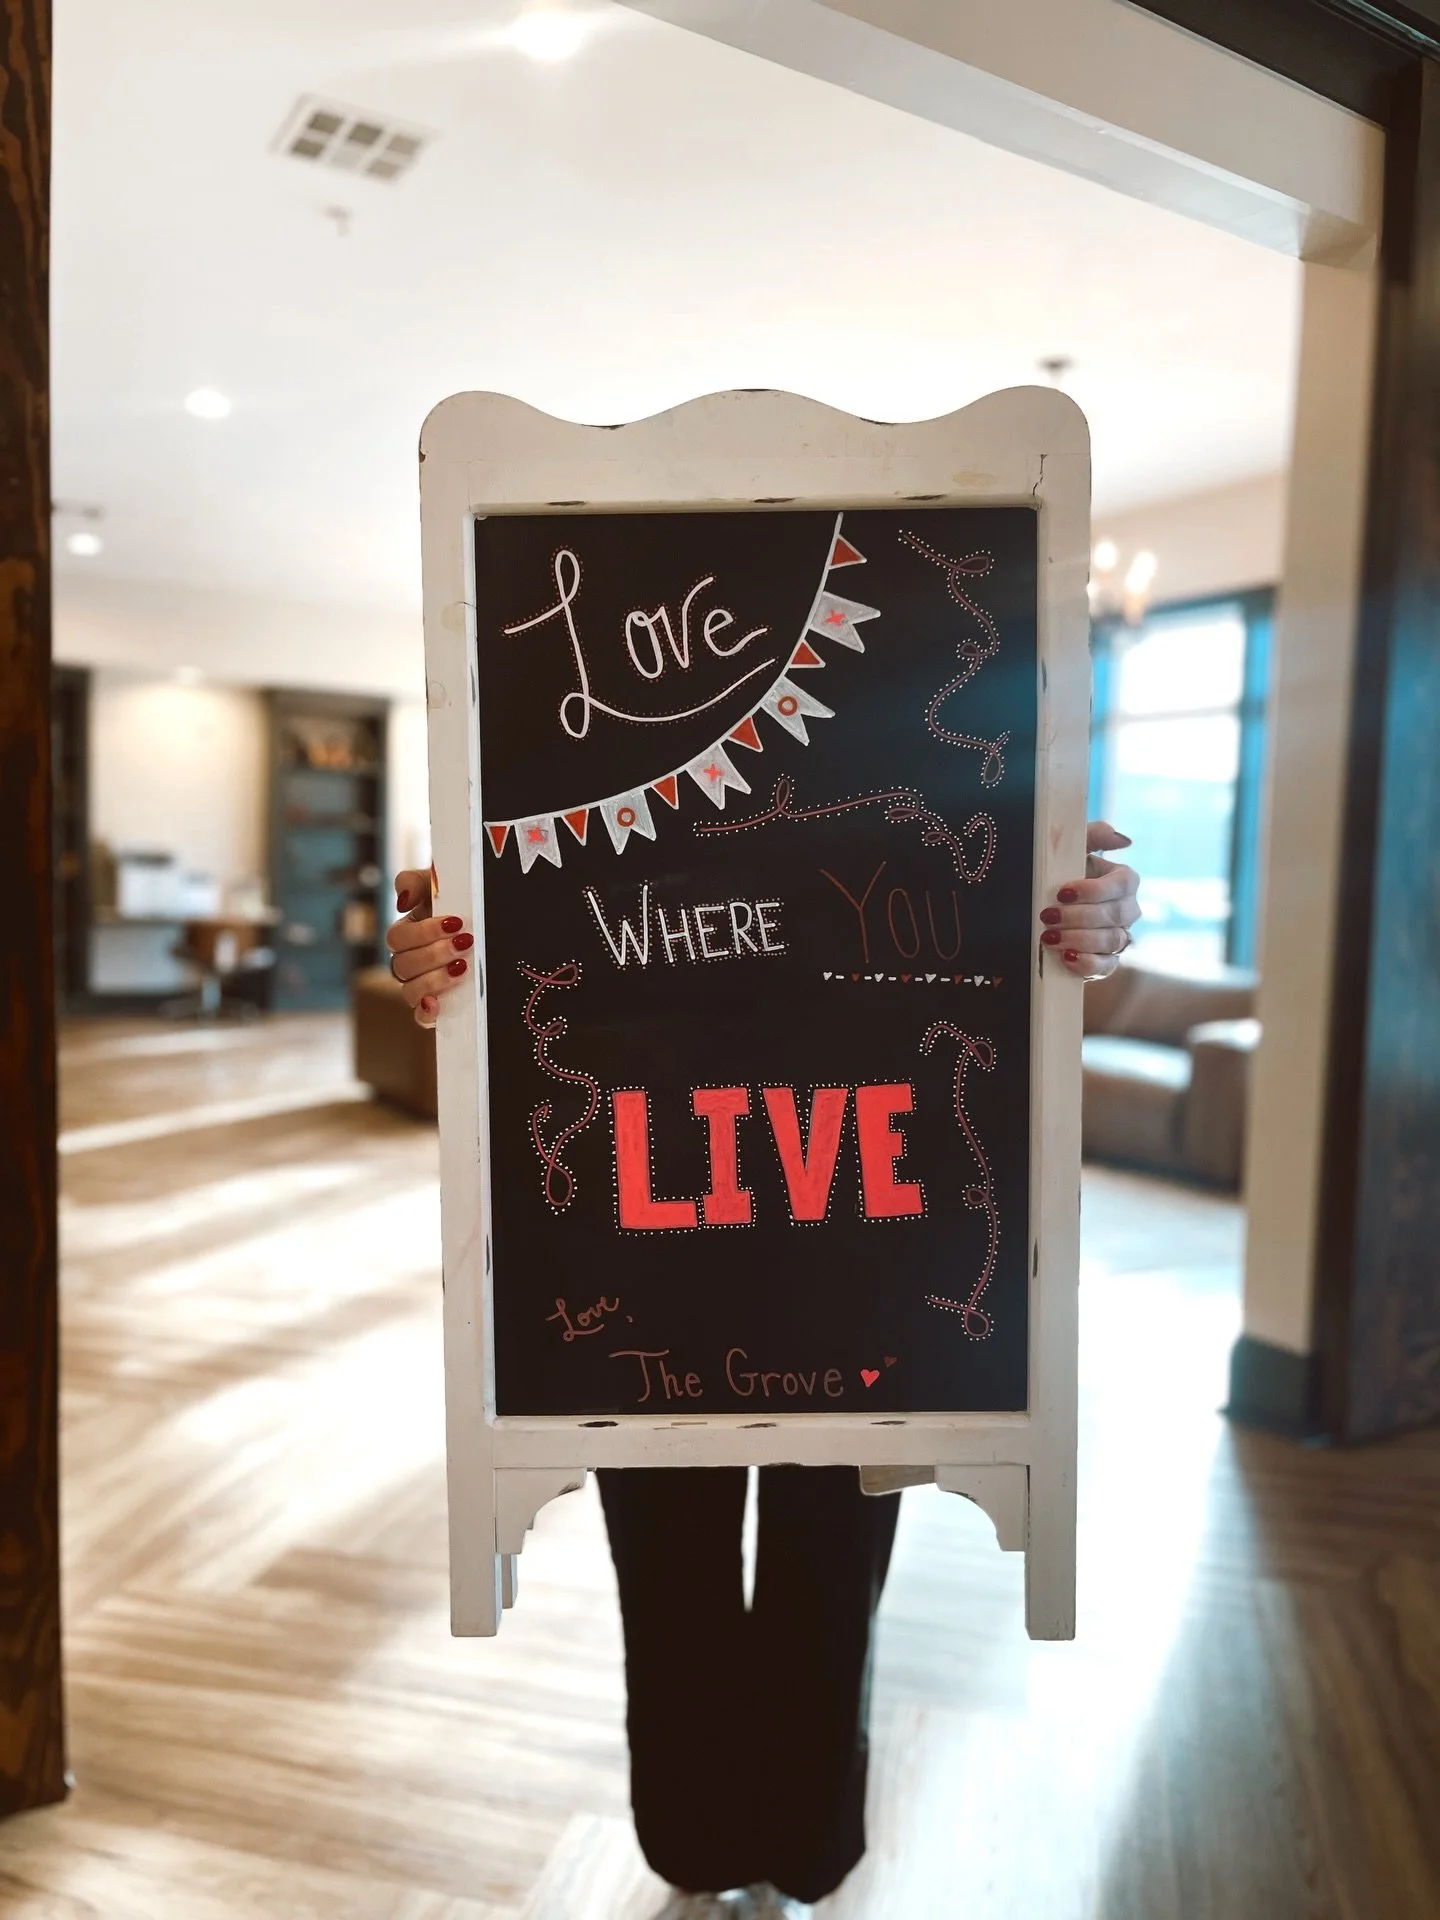 Love
WHERE YOU
LIVE
Love,
The Grove